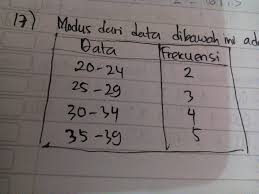 17) Modus dari data dibawah ini
Data Frekuensi
20-24 2
25-29 3
30-34 4
35-39 5